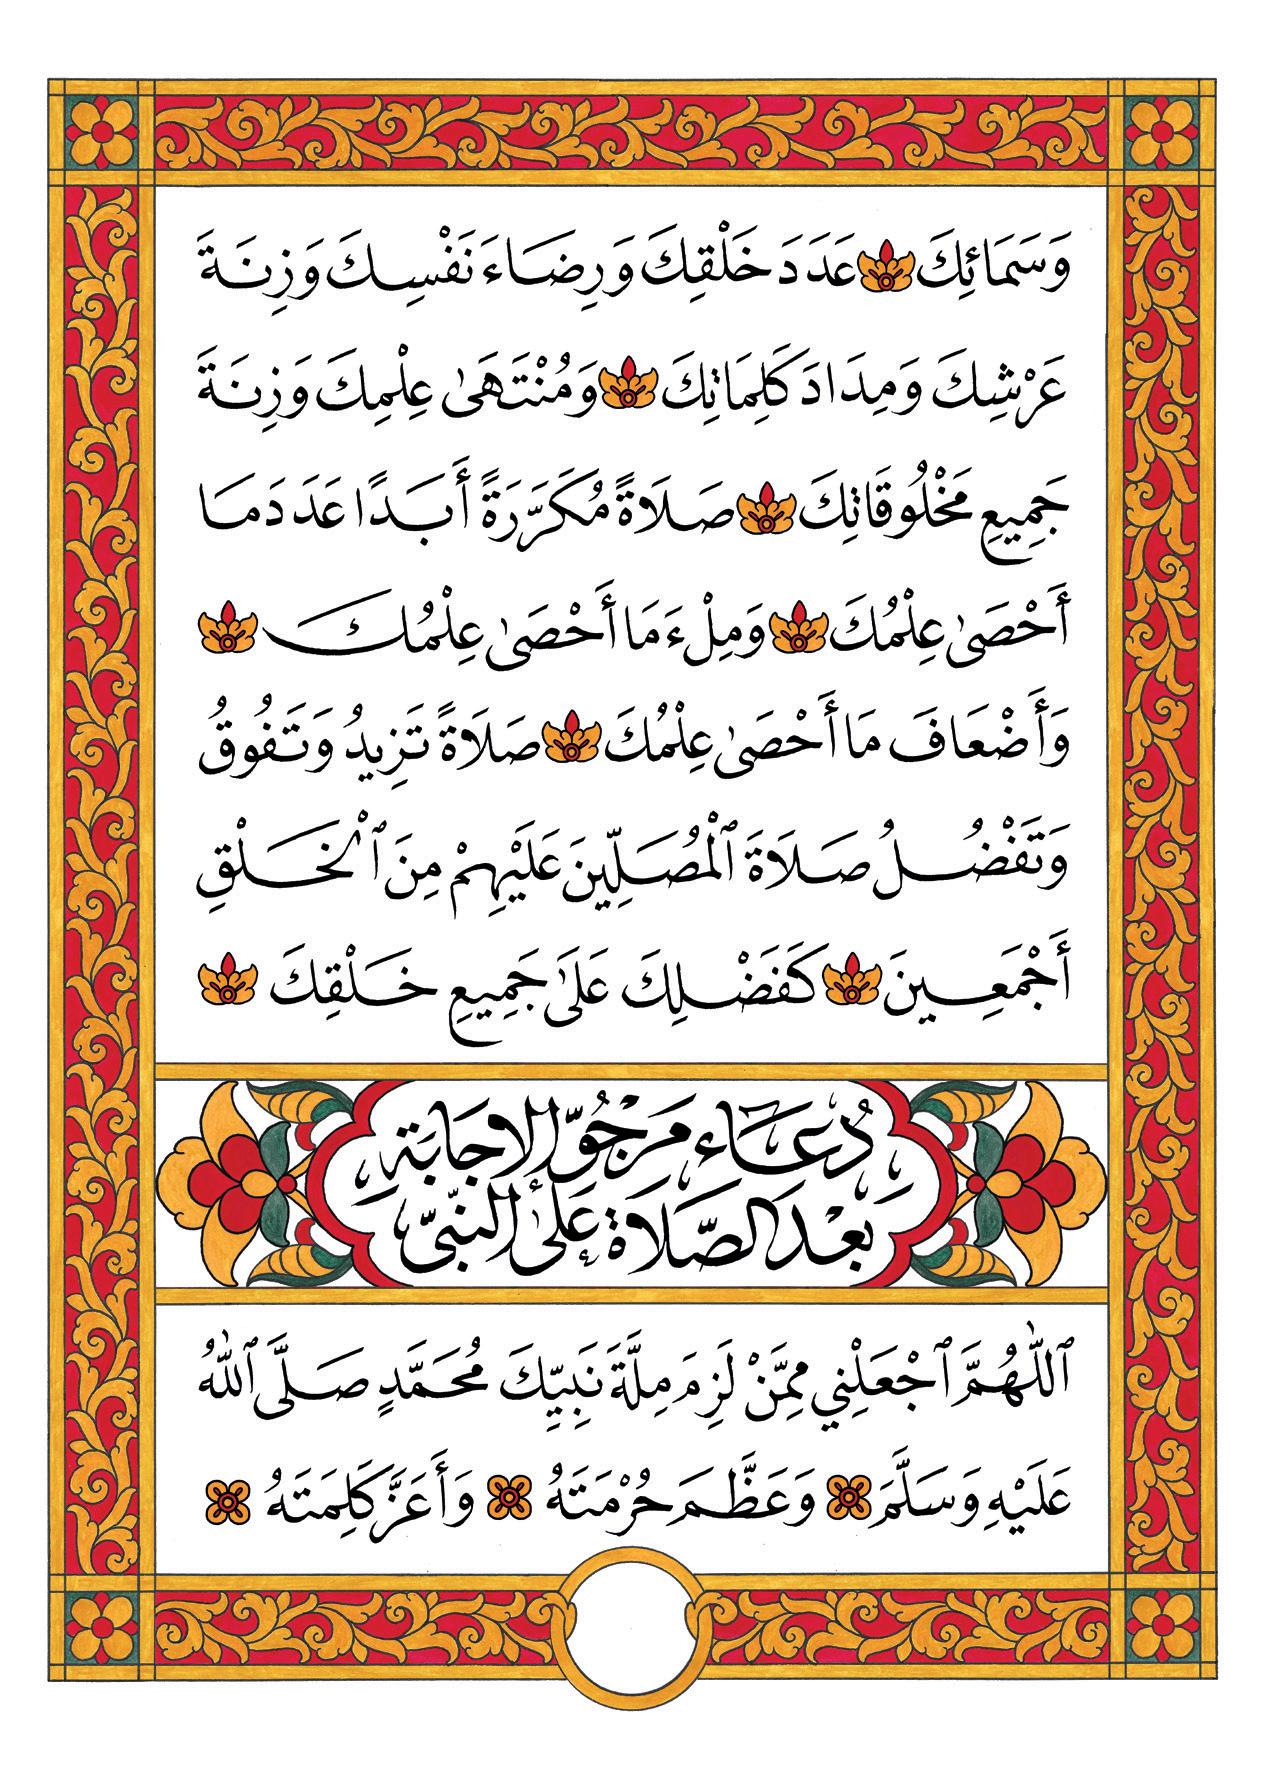 وَسَمَائِكَ عَدَدَ خَلْقِكَ وَرِضَاءَ نَفْسِكَ وَزِنَةَ
عَرْشِكَ وَمِدَادَ كَلِمَاتِكَ وَمُنْتَهَىٰ عِلْمِكَ وَزِنَةَ
جَمِيعِ مَخْلُوقَاتِكَ صَلَاةً مُكَرَّرَةً أَبَدًا عَدَدَ مَا
أَحْصَىٰ عِلْمُكَ وَمِلْءَ مَا أَحْصَىٰ عِلْمُكَ
وَأَضْعَافَ مَا أَحْصَىٰ عِلْمُكَ صَلَاةً تَزِيدُ وَتَفُوقُ
وَتَفْضُلُ صَلَاةَ ٱلْمُصَلِّينَ عَلَيْهِمْ مِنَ ٱلْخَلْقِ
أَجْمَعِينَ كَفَضْلِكَ عَلَىٰ جَمِيعِ خَلْقِكَ
دُعَاء مَرْجُوّ الاِجَابَةِ
بَعْدَ الصَّلَاةِ عَلَىٰ النَّبِيِّ
ٱللّٰهُمَّ ٱجْعَلْنِي مِمَّنْ لَزِمَ مِلَّةَ نَبِيِّكَ مُحَمَّدٍ صَلَّى ٱللّٰهُ
عَلَيْهِ وَسَلَّمَ وَعَظَّمَ حُرْمَتَهُ وَأَعَزَّ كَلِمَتَهُ